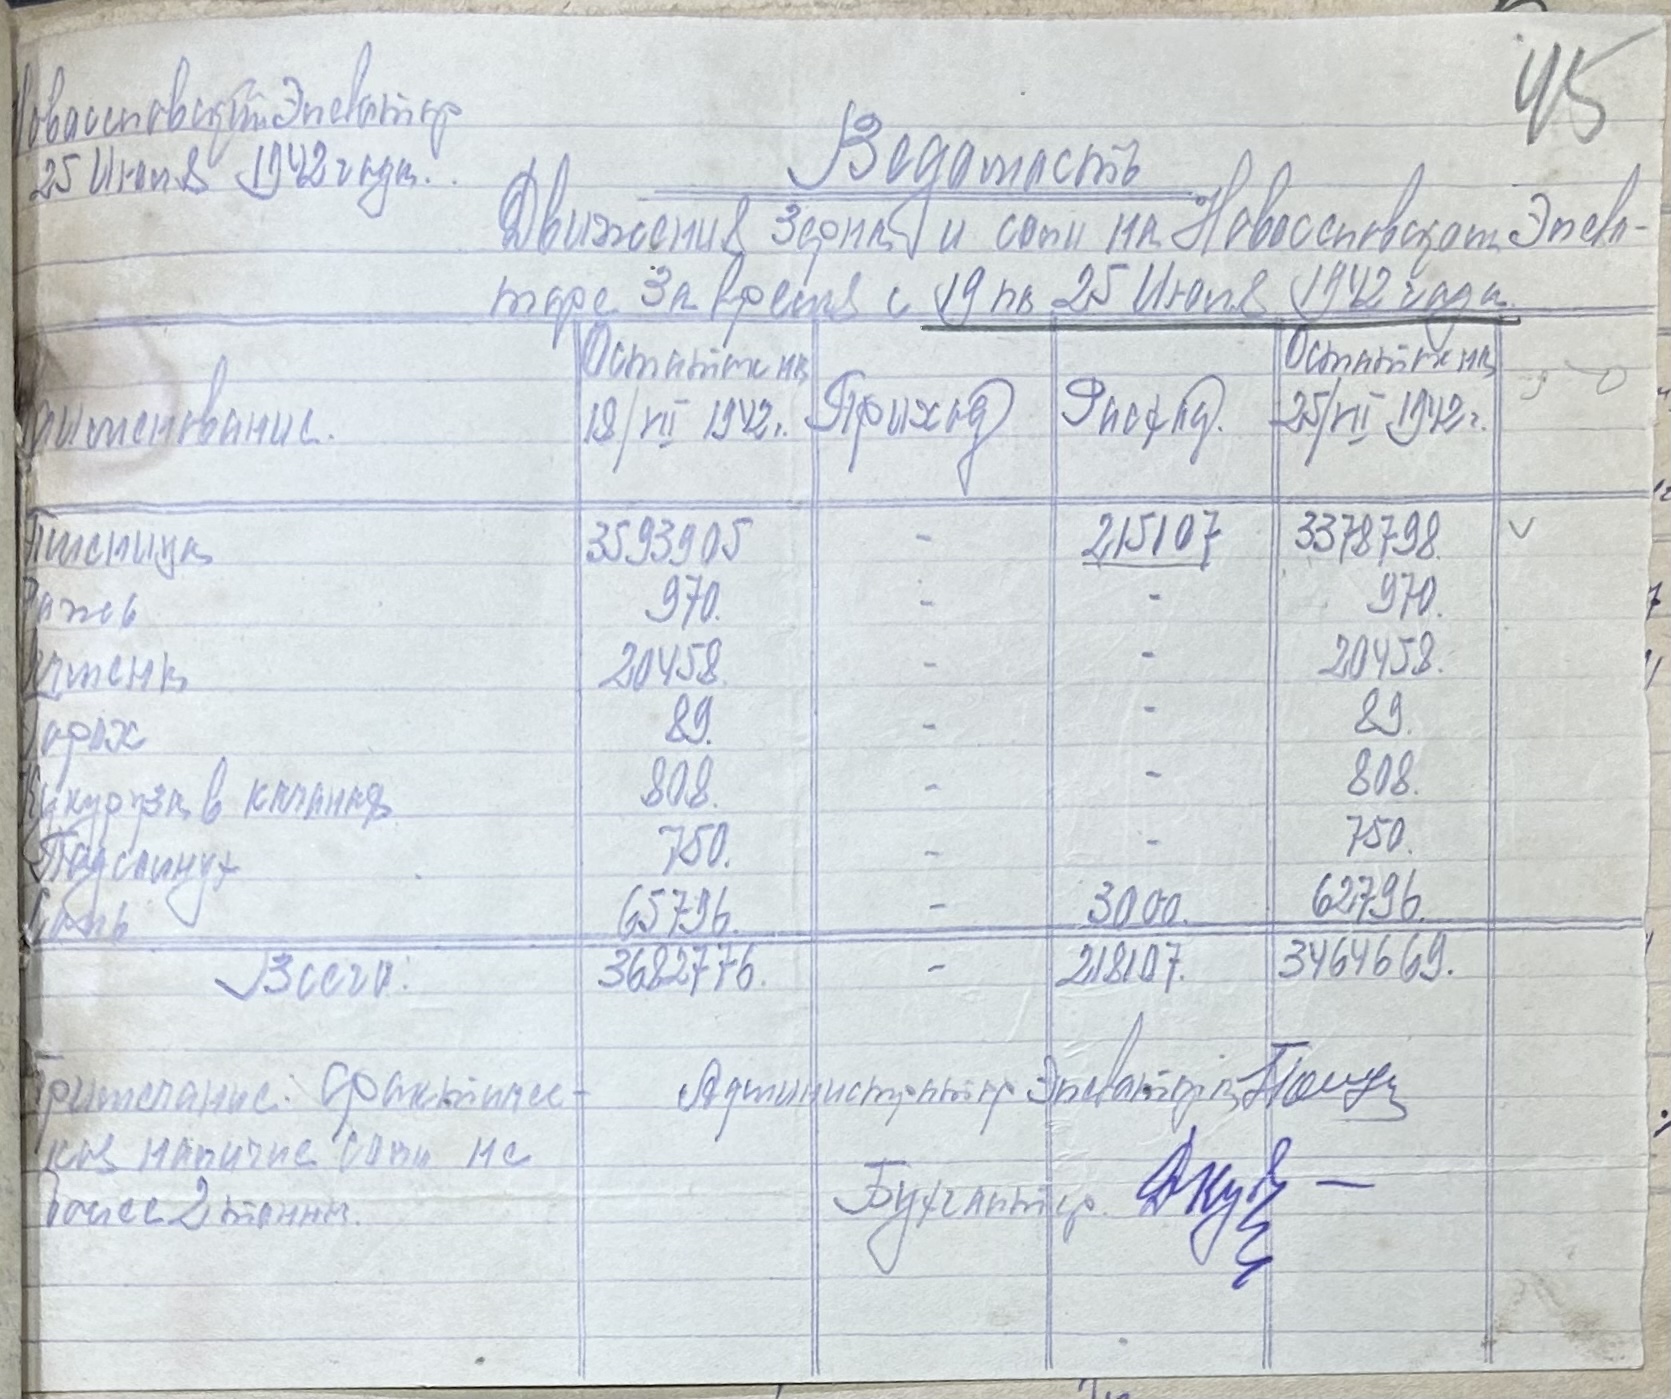 45
Новоселовский Элеватор
25 Июля 1942 года.
Ведомость
Движения Зерна и соли на Новоселовском Элева-
торе за время с 19 по 25 Июля 1942 года.
Наименование. Остаток на 18/VII 1942г. Приход Расход. Остаток на 25/VII 1942г.
Пшеница 3593905 - 215107 3378798. ✓
Рожь 970. - - 970.
Ячмень 20458. - - 20458.
Горох 89. - - 89.
Кукуруза в кочанах 808. - - 808.
Подсолнух 750. - - 750.
Соль 65796. - 3000. 62796.
Всего: 3682776. - 218107. 3464669.
Примечание: Фактичес-
кое наличие соли не
более 2 тонн.
Администратор Элеватора
Бухгалтер.